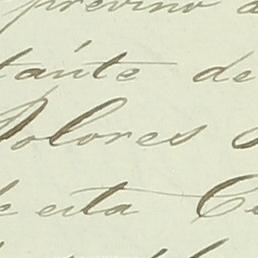 previno a
tante de
Dolores
de esta